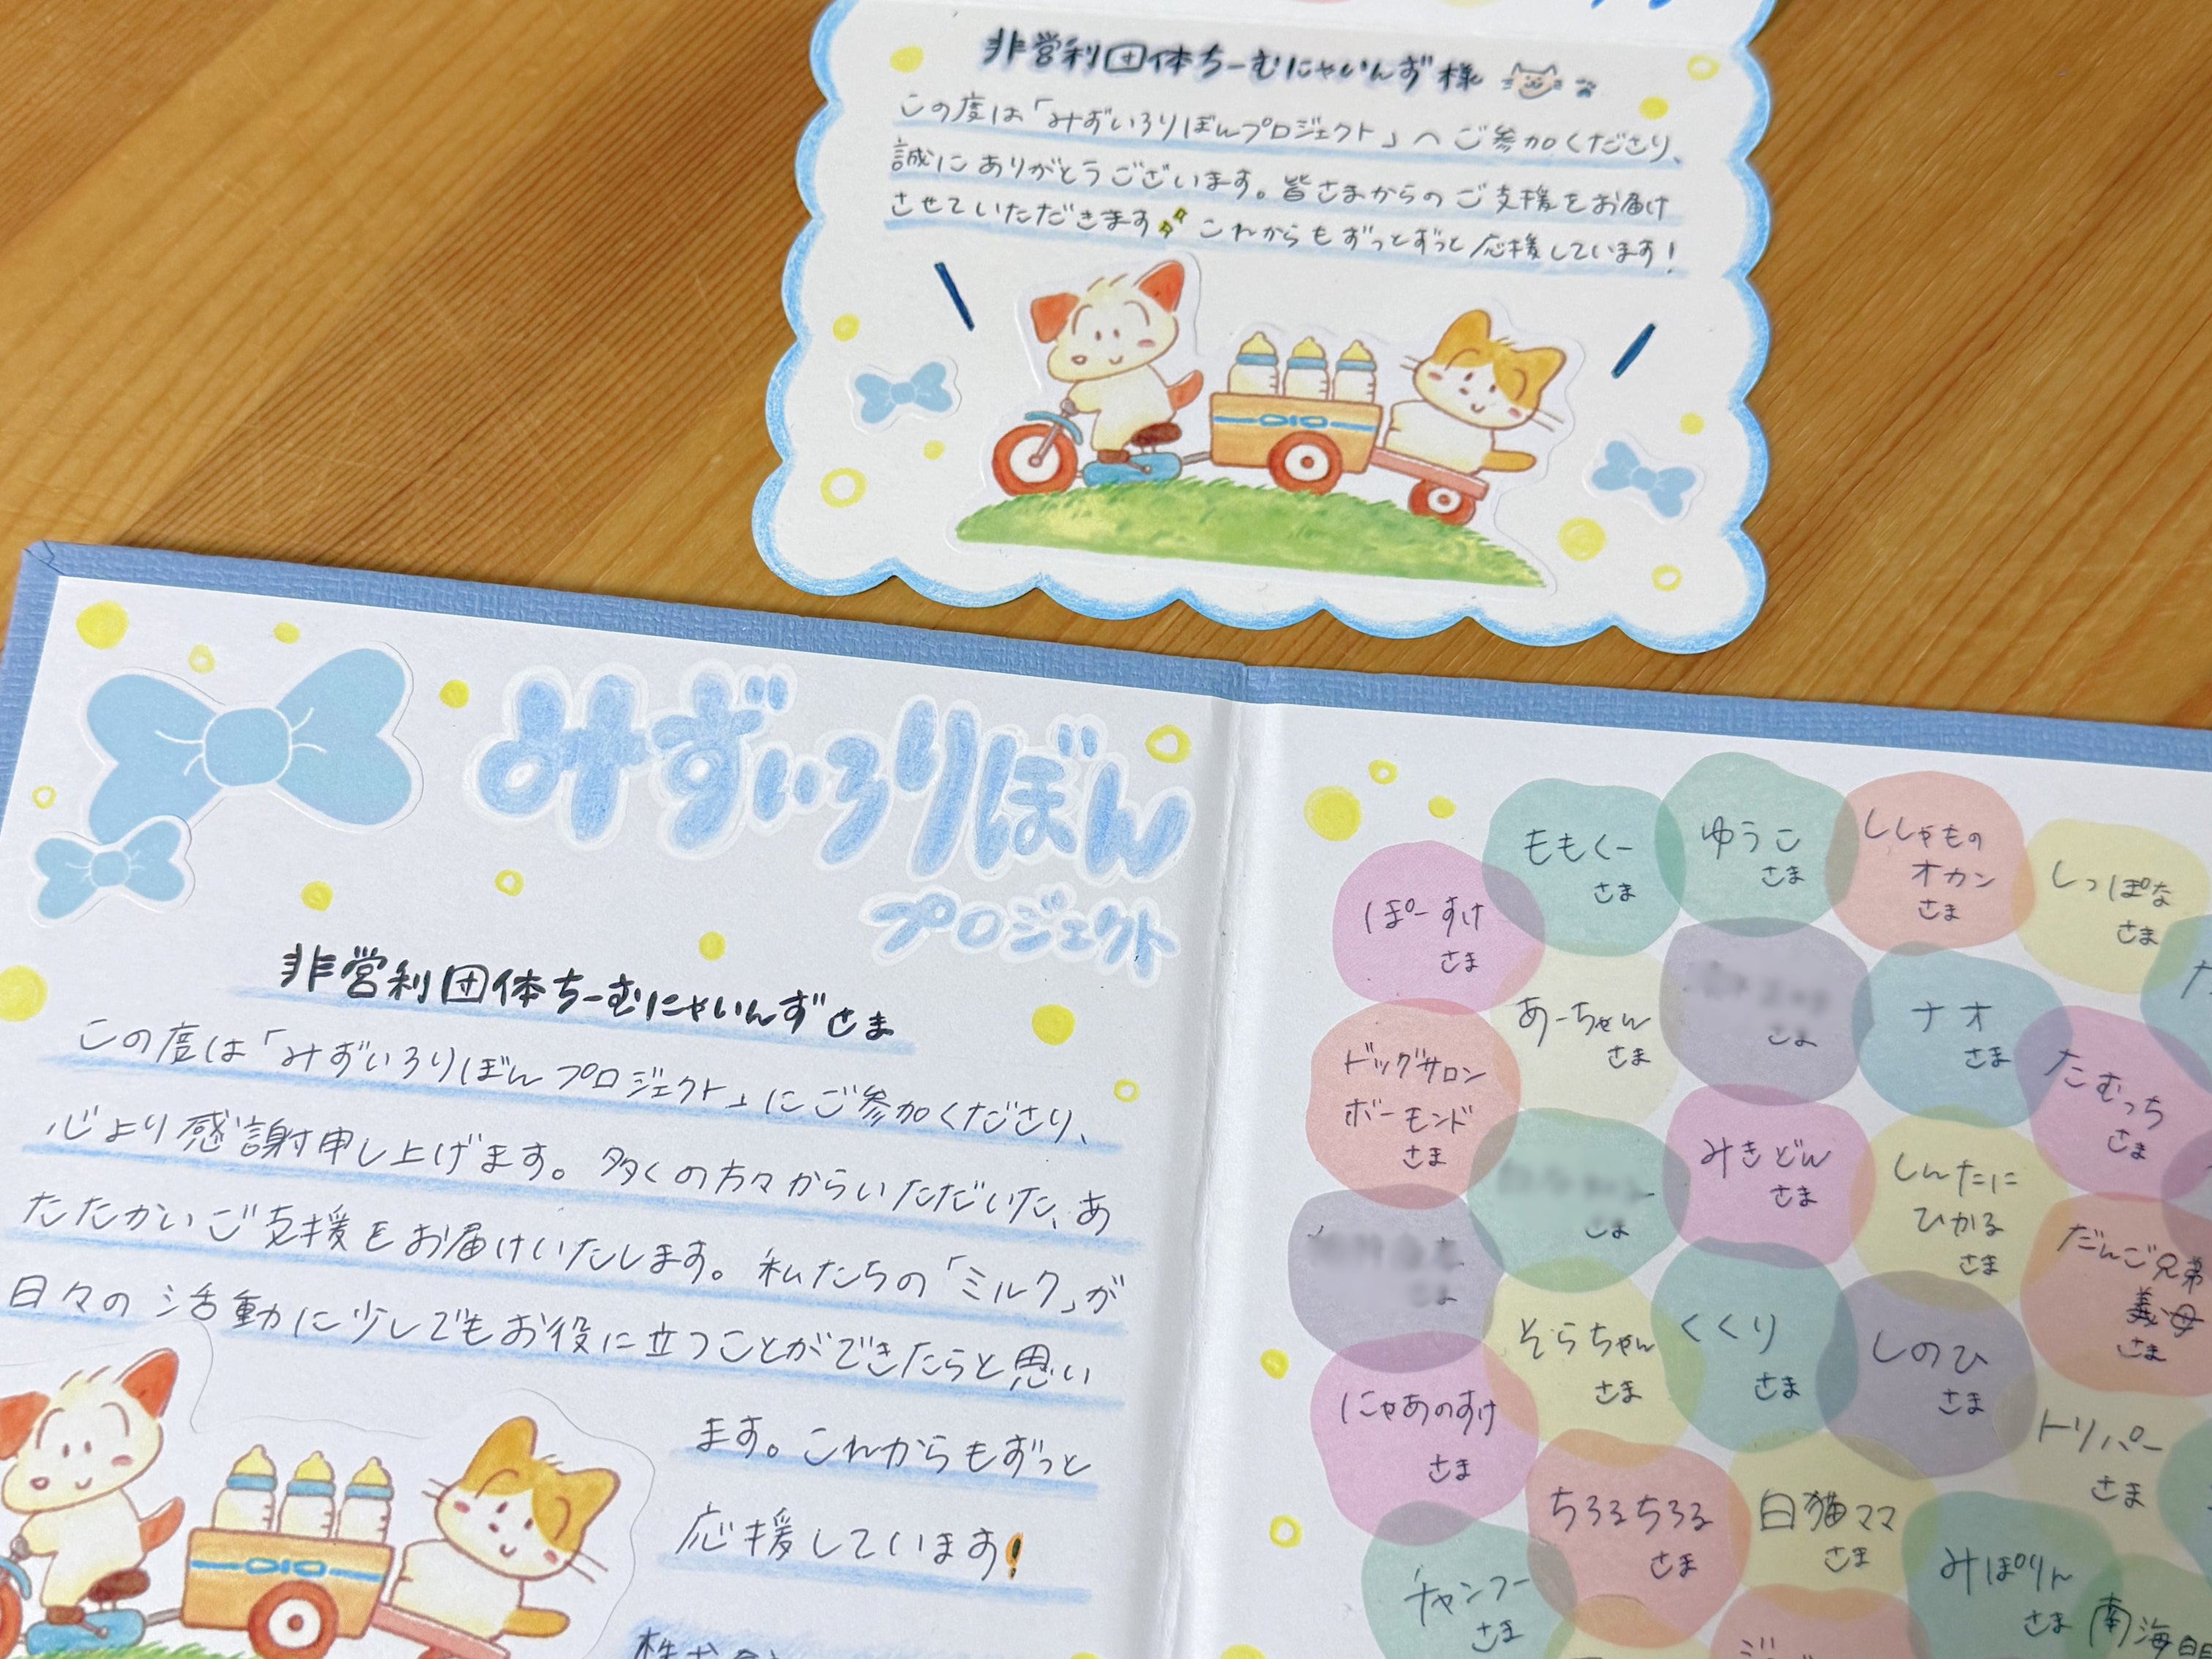 非営利団体ちーむにゃいんず様
この度は「みずいろりぼんプロジェクト」へご参加くださり、
誠にありがとうございます。皆さまからのご支援をお届け
させていただきます これからもずっとずっと応援しています！
みずいろりぼん
プロジェクト
非営利団体ちーむにゃいんずさま
この度は「みずいろりぼんプロジェクト」にご参加くださり、
心より感謝申し上げます。多くの方々からいただいた、あ
たたかいご支援をお届けいたします。私たちの「ミルク」が
日々の活動に少しでもお役に立つことができたらと思い
ます。これからもずっと
応援しています！
株式会
ぽーすけ
さま
ももくー
さま
ゆうこ
さま
ししゃもの
オカン
さま
しっぽな
さま
ドッグサロン
ボーモンド
さま
あーちゃん
さま
さま
ナオ
さま
たむっち
さま
さま
さま
みきどん
さま
しんたに
ひかる
さま
だんご兄弟
義母
さま
にゃあのすけ
さま
そらちゃん
さま
くくり
さま
しのひ
さま
トリパー
さま
チャンフー
さま
ちろるちろる
さま
白猫ママ
さま
みぽりん
さま
南海